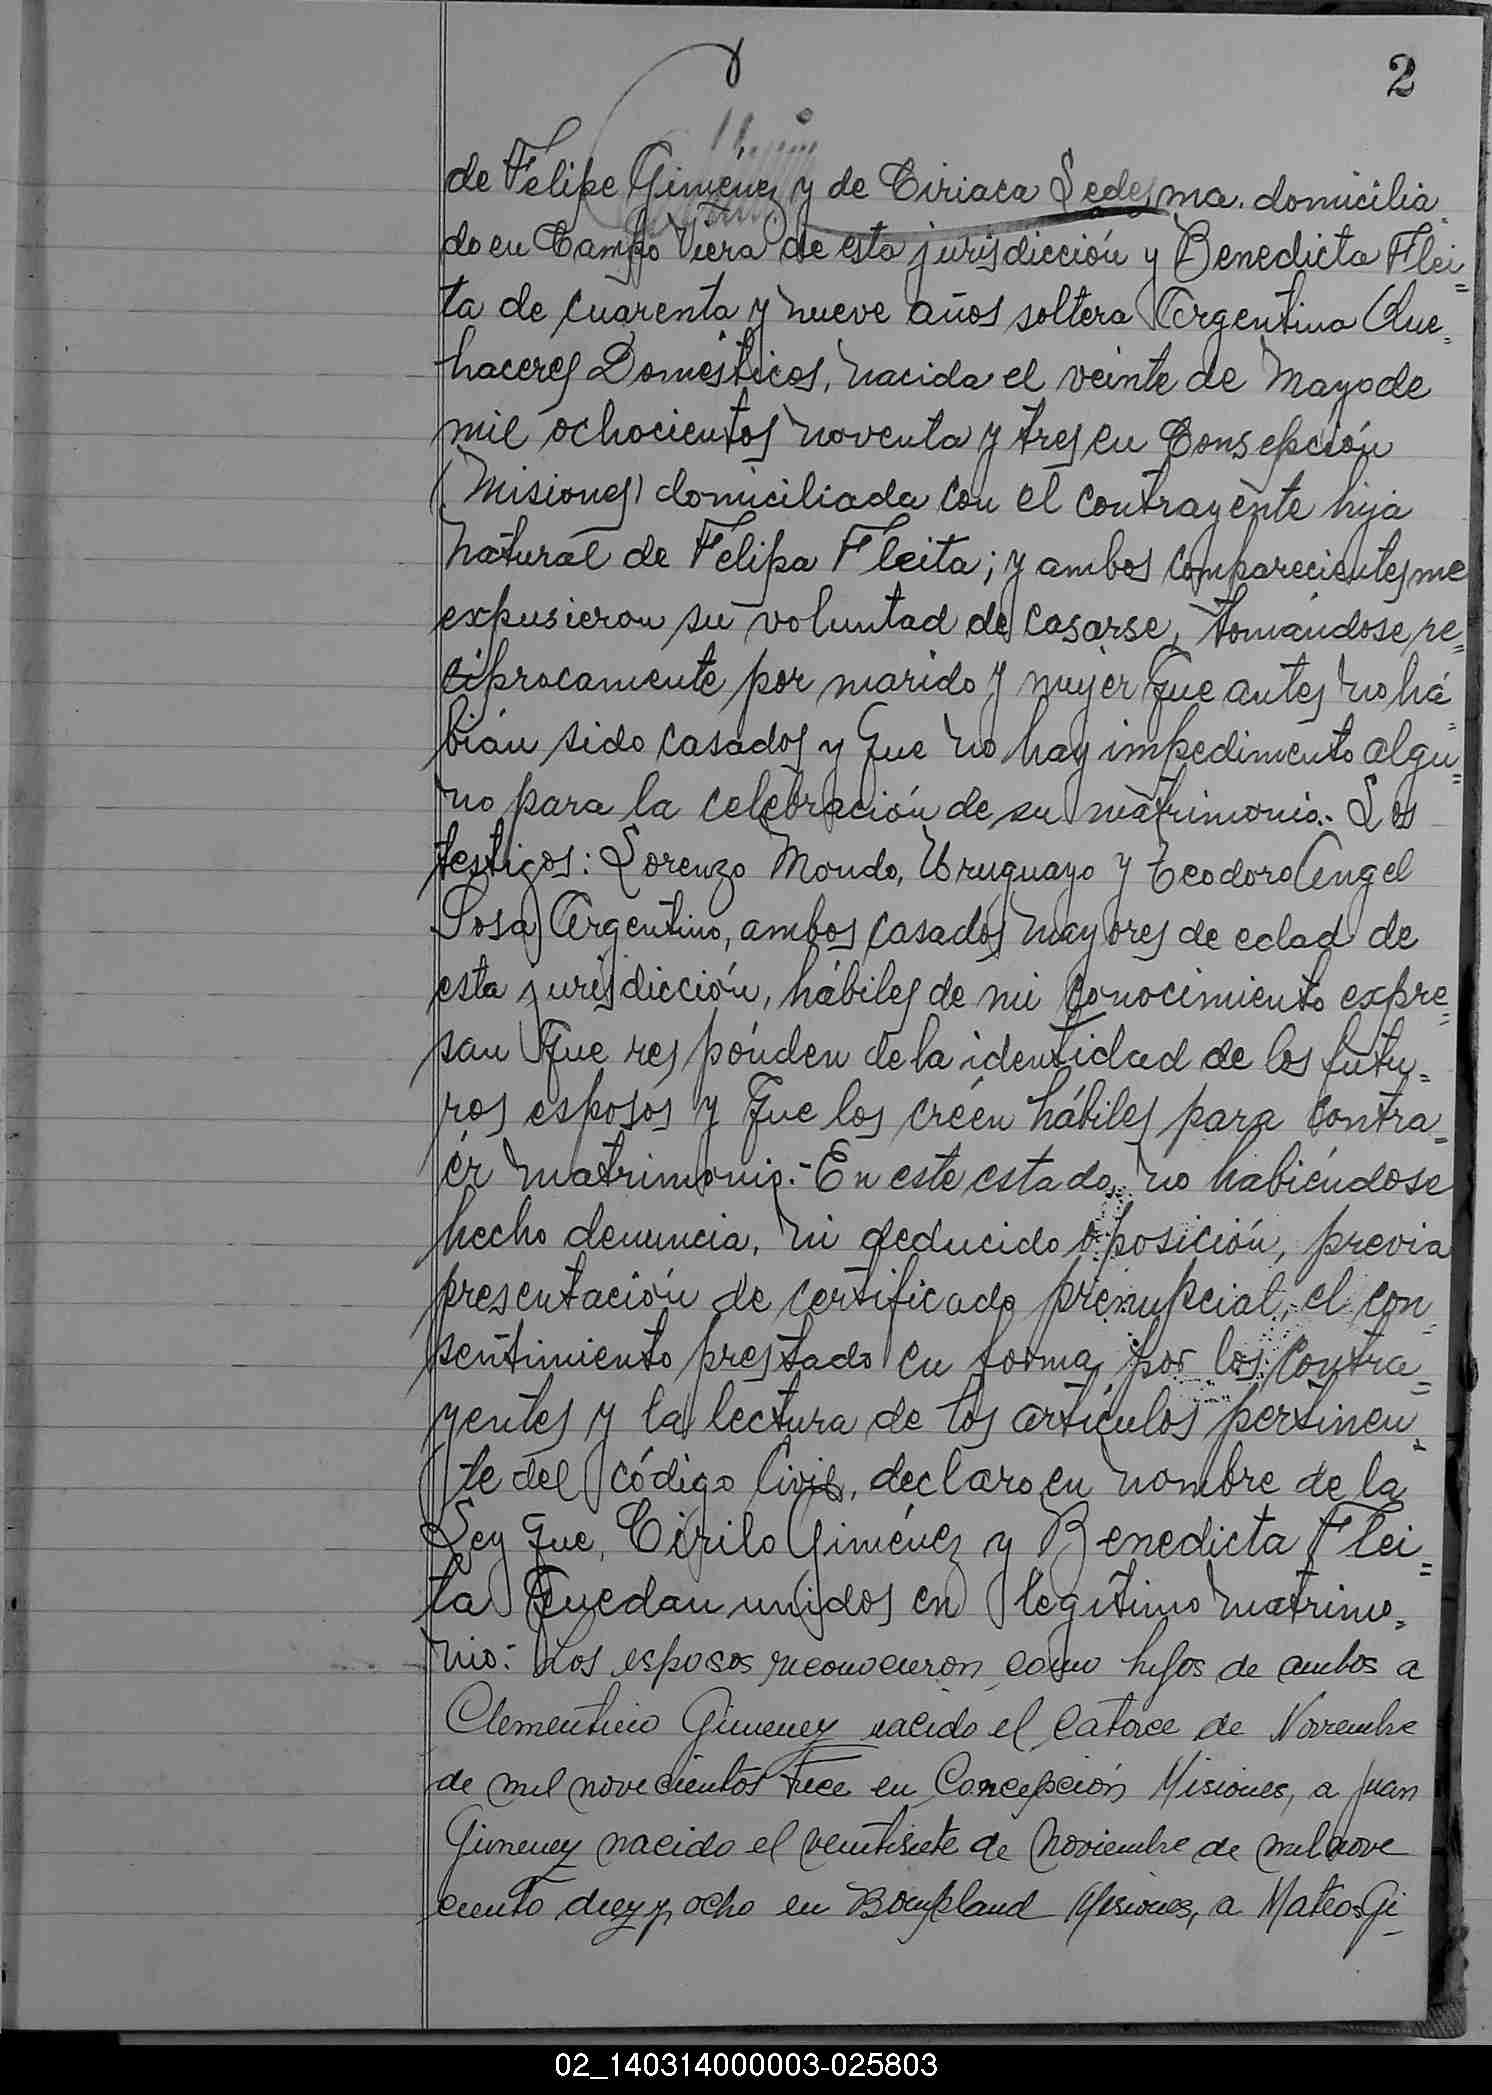 2
de Felipe Giménez y de Ciriaca Ledesma. domicilia
do en Campo Viera de esta jurisdicción y Benedicta Flei=
ta de cuarenta y nueve años soltera Argentina Que=
haceres Domésticos, nacida el veinte de Mayo de
mil ochocientos noventa y tres en Consepción
(Misiones) domiciliada con el contrayente hija
natural de Felipa Fleita; y ambos comparecientes me
expusieron su voluntad de casarse, tomándose re=
ciprocamente por marido y mujer que antes no há=
bián sido casados y que no hay impedimento algu=
no para la celebración de su matrimonio.- Los
testigos: Lorenzo Mondo, Uruguayo y Teodoro Angel
Sosa Argentino, ambos casados mayores de edad de
esta jurisdicción, hábiles de mi conocimiento expre=
san que respónden de la identidad de los futu=
ros esposos y que los créen hábiles para contra=
ér matrimonio.- En este estado, no habiéndose
hecho denuncia, ni deducido oposición, previa
presentación de certificado prenupcial, el con=
sentimiento prestado en forma por los contra=
yentes y la lectura de los artículos pertinen=
te del código Civil, declaro en nombre de la
Ley que, Cirilo Giménez y Benedicta Flei=
ta quedan unidos en legítimo matrimo=
nio:- Los esposos reconocieron como hijos de ambos a
Clementino Gimenez nacido el catorce de Noviembre
de mil novecientos trece en Concepción Misiones, a Juan
Gimenez nacido el ventisiete de Noviembre de mil nove
ciento diez y ocho en Bompland Misiones, a Mateo Gi-
02_140314000003-025803